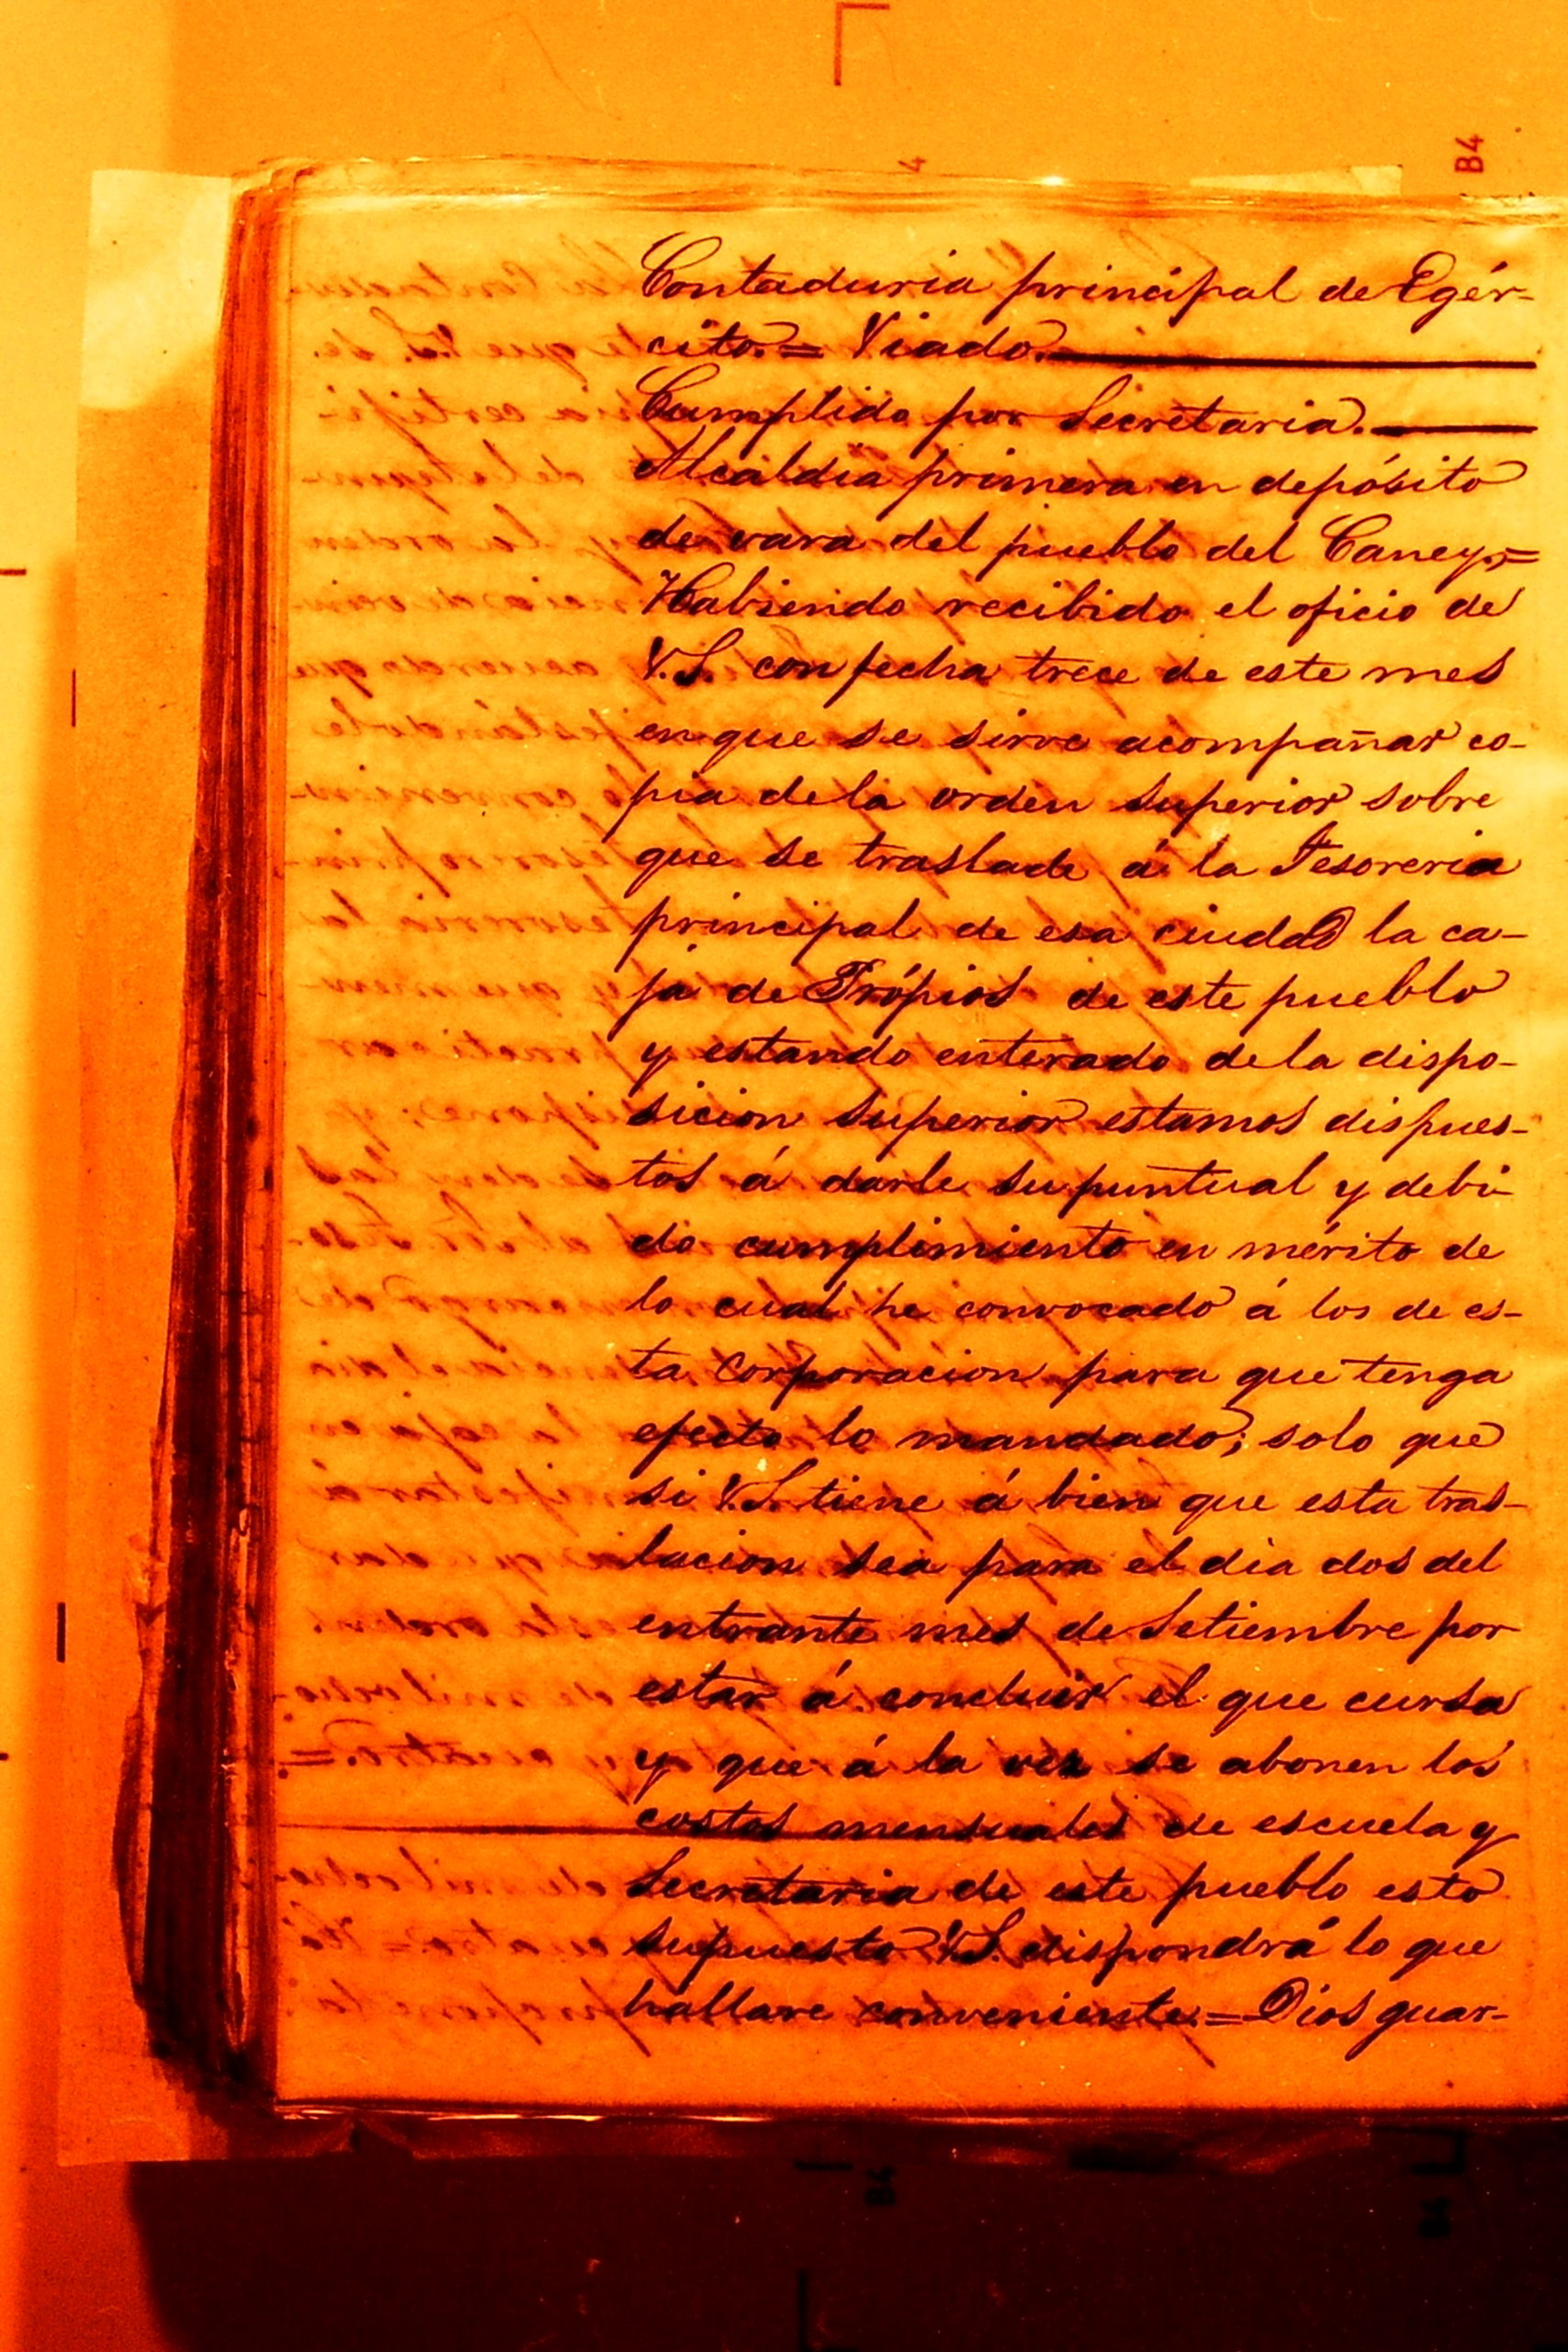 4
B4
Contaduria principal de Egér-
cito. = Viado.
Cumplido por Secretaria.
Alcaldia primera en depósito
de vara del pueblo del Caney. =
Habiendo recibido el oficio de
V.S. con fecha trece de este mes
en que se sirve acompañar co-
pia de la orden superior sobre
que se traslade á la Tesoreria
principal de esa ciudad la ca-
ja de Própios de este pueblo
y estando enterado de la dispo-
sicion superior estamos dispues-
tos á darle su puntual y debi-
do cumplimiento en mérito de
lo cual he convocado á los de es-
ta corporacion para que tenga
efecto lo mandado; solo que
si V.S. tiene á bien que esta tras-
lacion sea para el dia dos del
entrante mes de Setiembre por
estar á concluir el que cursa
y que á la vez se abonen los
costos mensuales de escuela y
Secretaria de este pueblo esto
supuesto V.S. dispondrá lo que
hallare conveniente. = Dios guar-
B4
B4